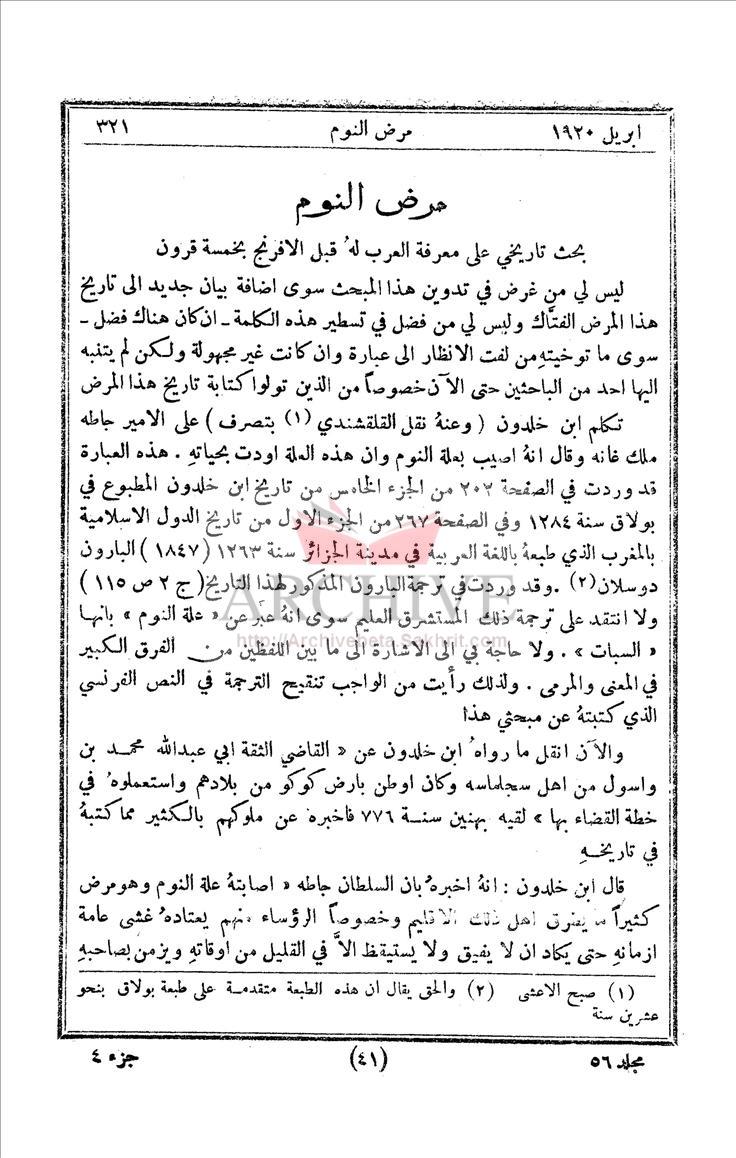 ابريل ١٩٢٠ مرض النوم ٣٢١
مرض النوم
بحث تاريخي على معرفة العرب لهُ قبل الافرنج بخمسة قرون
ليس لي من غرض في تدوين هذا المبحث سوى اضافة بيان جديد الى تاريخ
هذا المرض الفتَّاك وليس لي من فضل في تسطير هذه الكلمة ـ ان كان هناك فضل ـ
سوى ما توخيتهِ من لفت الانظار الى عبارة وان كانت غير مجهولة ولكن لم يتنبه
اليها احد من الباحثين حتى الآن خصوصاً من الذين تولوا كتابة تاريخ هذا المرض
تكلم ابن خلدون ( وعنهُ نقل القلقشندي (١) بتصرف ) على الامير جاطه
ملك غانه وقال انهُ اصيب بعلة النوم وان هذه العلة اودت بحياتهِ . هذه العبارة
قد وردت في الصفحة ٢٠٢ من الجزء الخامس من تاريخ ابن خلدون المطبوع في
بولاق سنة ١٢٨٤ وفي الصفحة ٢٦٧ من الجزء الاول من تاريخ الدول الاسلامية
بالمغرب الذي طبعهُ باللغة العربية في مدينة الجزائر سنة ١٢٦٣ ( ١٨٤٧ ) البارون
دوسلان (٢) . وقد وردت في ترجمة البارون المذكور لهذا التاريخ ( ج ٢ ص ١١٥ )
ولا انتقد على ترجمة ذلك المستشرق العليم سوى انهُ عبَّر عن « علة النوم » بانها
« السبات » . ولا حاجة بي الى الاشارة الى ما بين اللفظين من الفرق الكبير
في المعنى والمرمى . ولذلك رأيت من الواجب تنقيح الترجمة في النص الفرنسي
الذي كتبتهُ عن مبحثي هذا
والآن انقل ما رواهُ ابن خلدون عن « القاضي الثقة ابي عبدالله محمد بن
واسول من اهل سجلماسه وكان اوطن بارض كوكو من بلادهم واستعملوهُ في
خطة القضاء بها » لقيه بهنين سنة ٧٧٦ فاخبره عن ملوكهم بالكثير مما كتبهُ
في تاريخهِ
قال ابن خلدون : انهُ اخبرهُ بان السلطان جاطه « اصابتهُ علة النوم وهو مرض
كثيراً ما يطرق اهل ذلك الاقليم وخصوصاً الرؤساء منهم يعتادهُ غشى عامة
ازمانهِ حتى يكاد ان لا يفيق ولا يستيقظ الاَّ في القليل من اوقاتهِ ويزمن بصاحبهِ
(١) صبح الاعشى (٢) والحق يقال ان هذه الطبعة متقدمة على طبعة بولاق بنحو
عشرين سنة
مجلد ٥٦ (٤١) جزء ٤
ARCHIVE
http://Archivebeta.Sakhrit.com